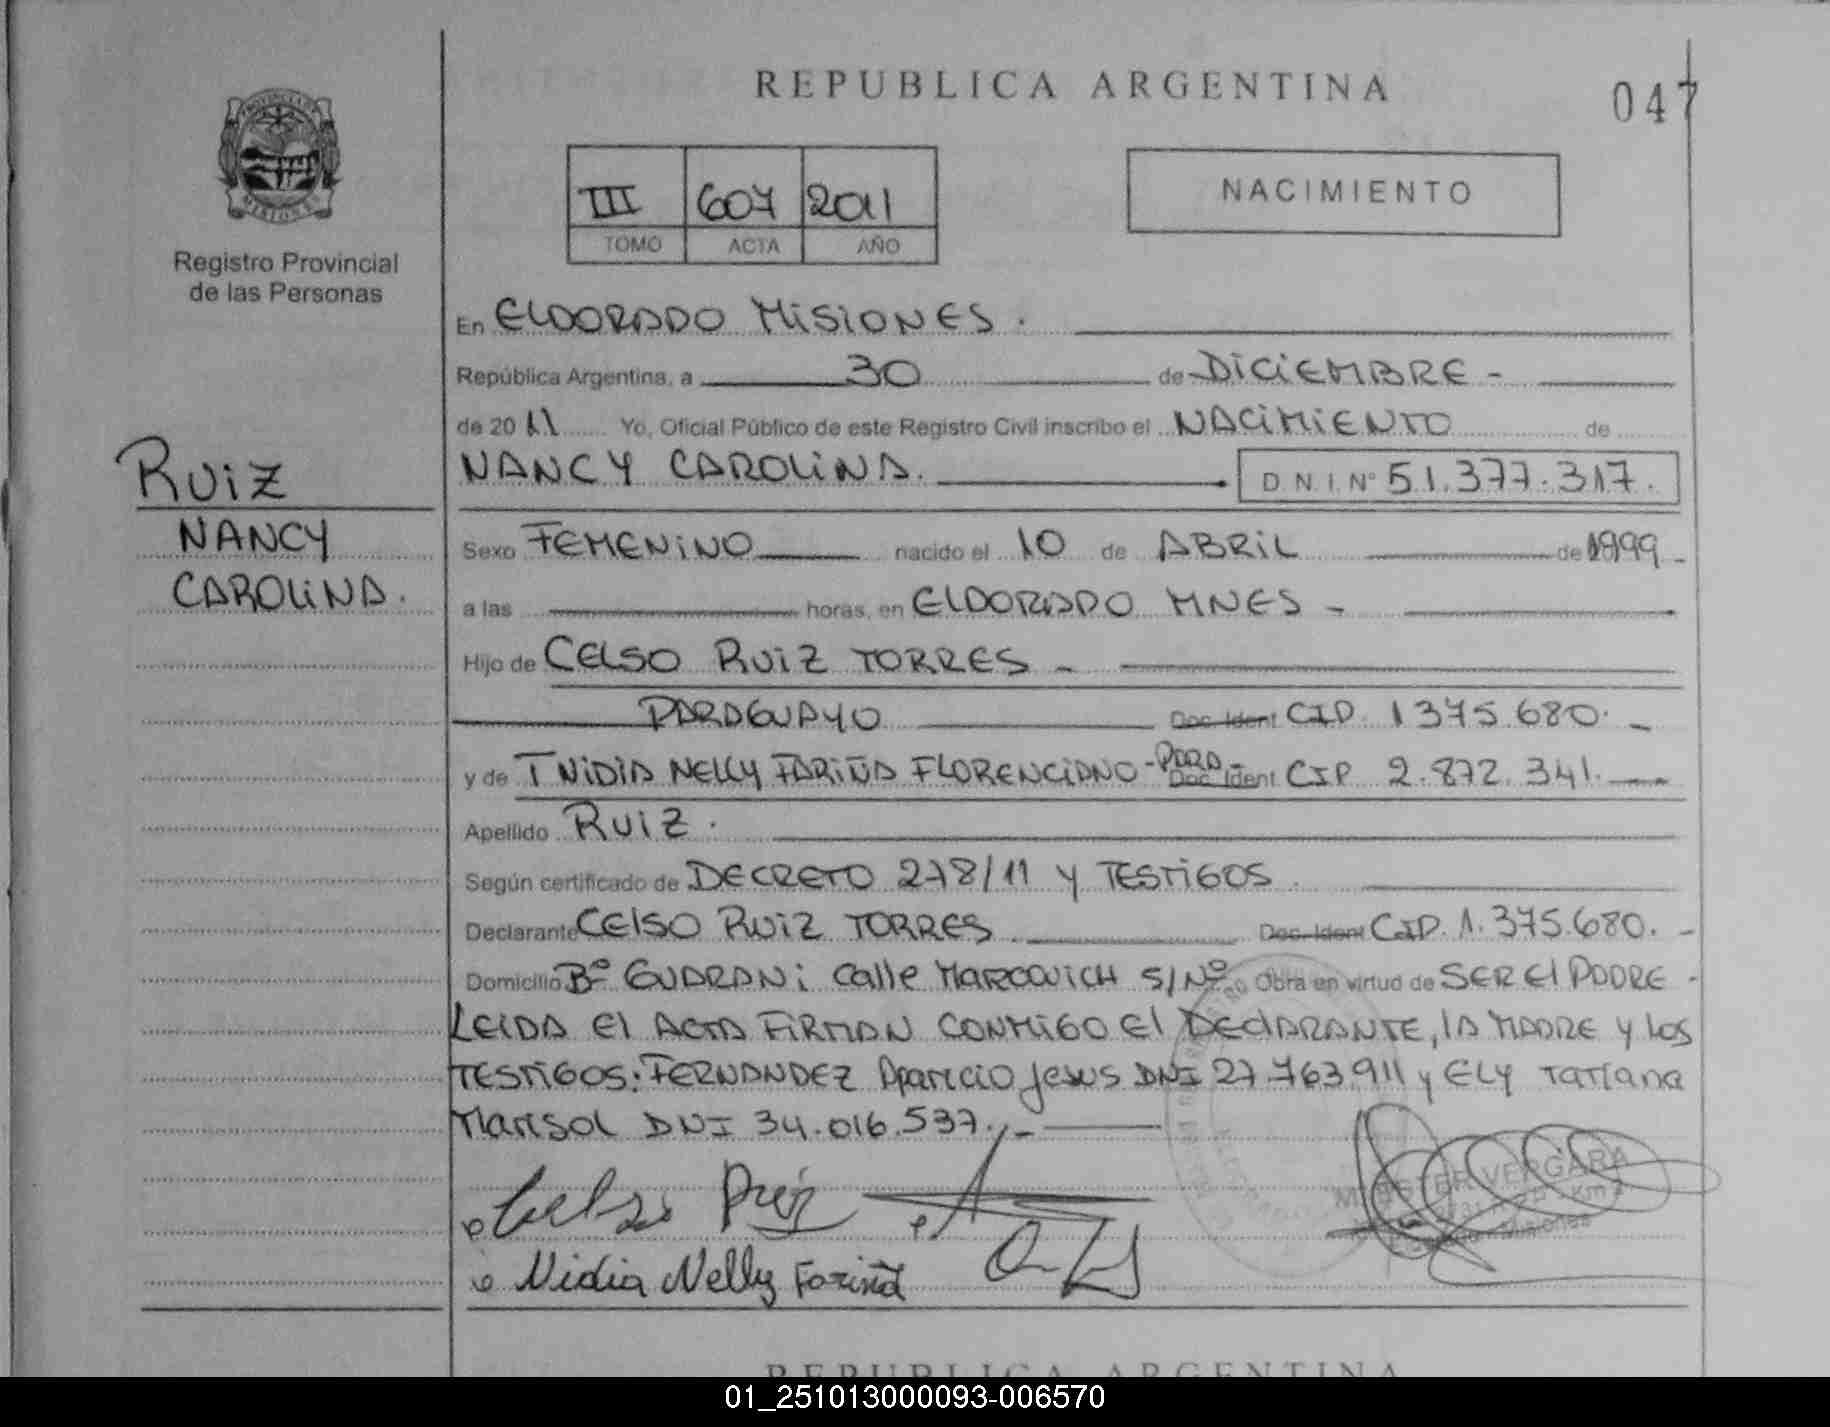 REPUBLICA ARGENTINA
047
PROVINCIA DE
MISIONES
Registro Provincial
de las Personas
III 607 2011
TOMO ACTA AÑO
NACIMIENTO
En ELDORADO MISIONES.
República Argentina, a 30 de DICIEMBRE -
de 2011 Yo, Oficial Público de este Registro Civil inscribo el NACIMIENTO de
RUIZ
NANCY
CAROLINA.
NANCY CAROLINA. D.N.I. Nº 51.377.317.
Sexo FEMENINO nacido el 10 de ABRIL de 1999 -
a las horas, en ELDORADO MNES -
Hijo de CELSO RUIZ TORRES -
PARAGUAYO Doc. Ident CIP. 1375.680. -
y de TNIDIA NELLY FARIÑA FLORENCIANO - PARA - Doc. Ident CIP 2.872.341.
Apellido RUIZ.
Según certificado de DECRETO 278/11 Y TESTIGOS.
Declarante CELSO RUIZ TORRES Doc. Ident CIP. 1.375.680. -
Domicilio Bº GUARANI Calle MARCOVICH S/Nº. Obra en virtud de SER El PADRE -
LEIDA El ACTA FIRMAN CONMIGO El DEClARANTE, lA MADRE y los
TESTIGOS: FERNANDEZ Aparicio Jesus DNI 27.763.911 y ELY Tatiana
Marisol DNI 34.016.537. -
Celso Ruiz
Nidia Nelly Fariña
VERGARA
Misiones
REPUBLICA ARGENTINA
01_251013000093-006570